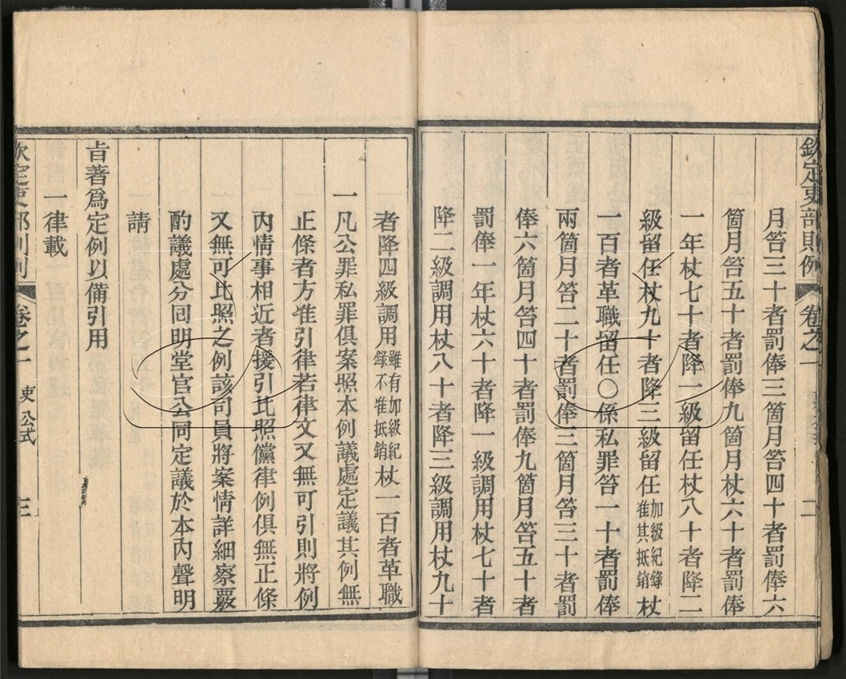 欽定吏部則例 卷之一 二
月笞三十者罰俸三箇月笞四十者罰俸六
箇月笞五十者罰俸九箇月杖六十者罰俸
一年杖七十者降一級留任杖八十者降二
級留任杖九十者降三級留任加級紀錄准其抵銷杖
一百者革職留任〇係私罪笞一十者罰俸
兩箇月笞二十者罰俸三箇月笞三十者罰
俸六箇月笞四十者罰俸九箇月笞五十者
罰俸一年杖六十者降一級調用杖七十者
降二級調用杖八十者降三級調用杖九十
者降四級調用雖有加級紀錄不准抵銷杖一百者革職
一凡公罪私罪俱案照本例議處定議其例無
正條者方准引律若律文又無可引則將例
內情事相近者援引比照儻律例俱無正條
又無可比照之例該司員將案情詳細察覈
酌議處分回明堂官公同定議於本內聲明
請
旨著為定例以備引用
一律載
欽定吏部則例 卷之一 吏 公式 三